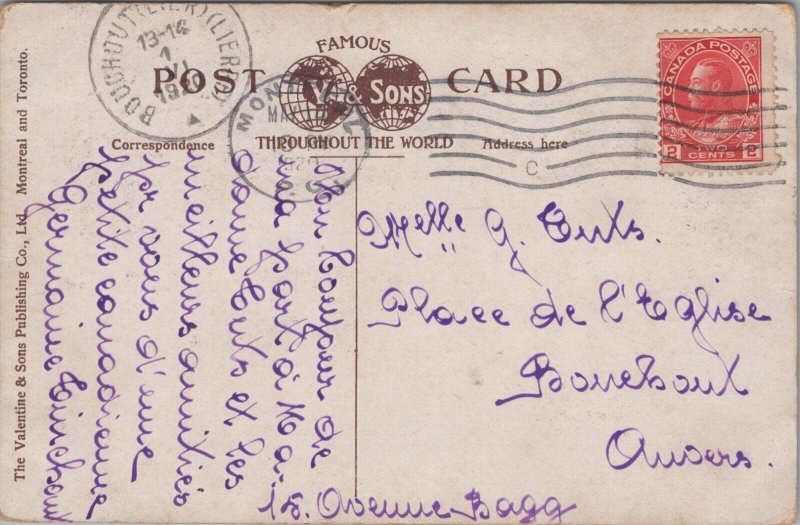 FAMOUS
POST CARD
V. & SONS
THROUGHOUT THE WORLD
Correspondence
Address here
The Valentine & Sons Publishing Co., Ltd. Montreal and Toronto.
BOUCHOUT (LIER) (LIERRE)
13-14
1
VI
MONTREAL
C
CANADA POSTAGE
TWO
2 CENTS 2
Un bonjour de
ma part à Ma-
dame Cuts et les
meilleurs amitiés
pr vous d'une
petite canadienne
Germaine
15. Avenue Bagg
Melle G. Cuts.
Place de l'Eglise
Bouchout
Anvers.